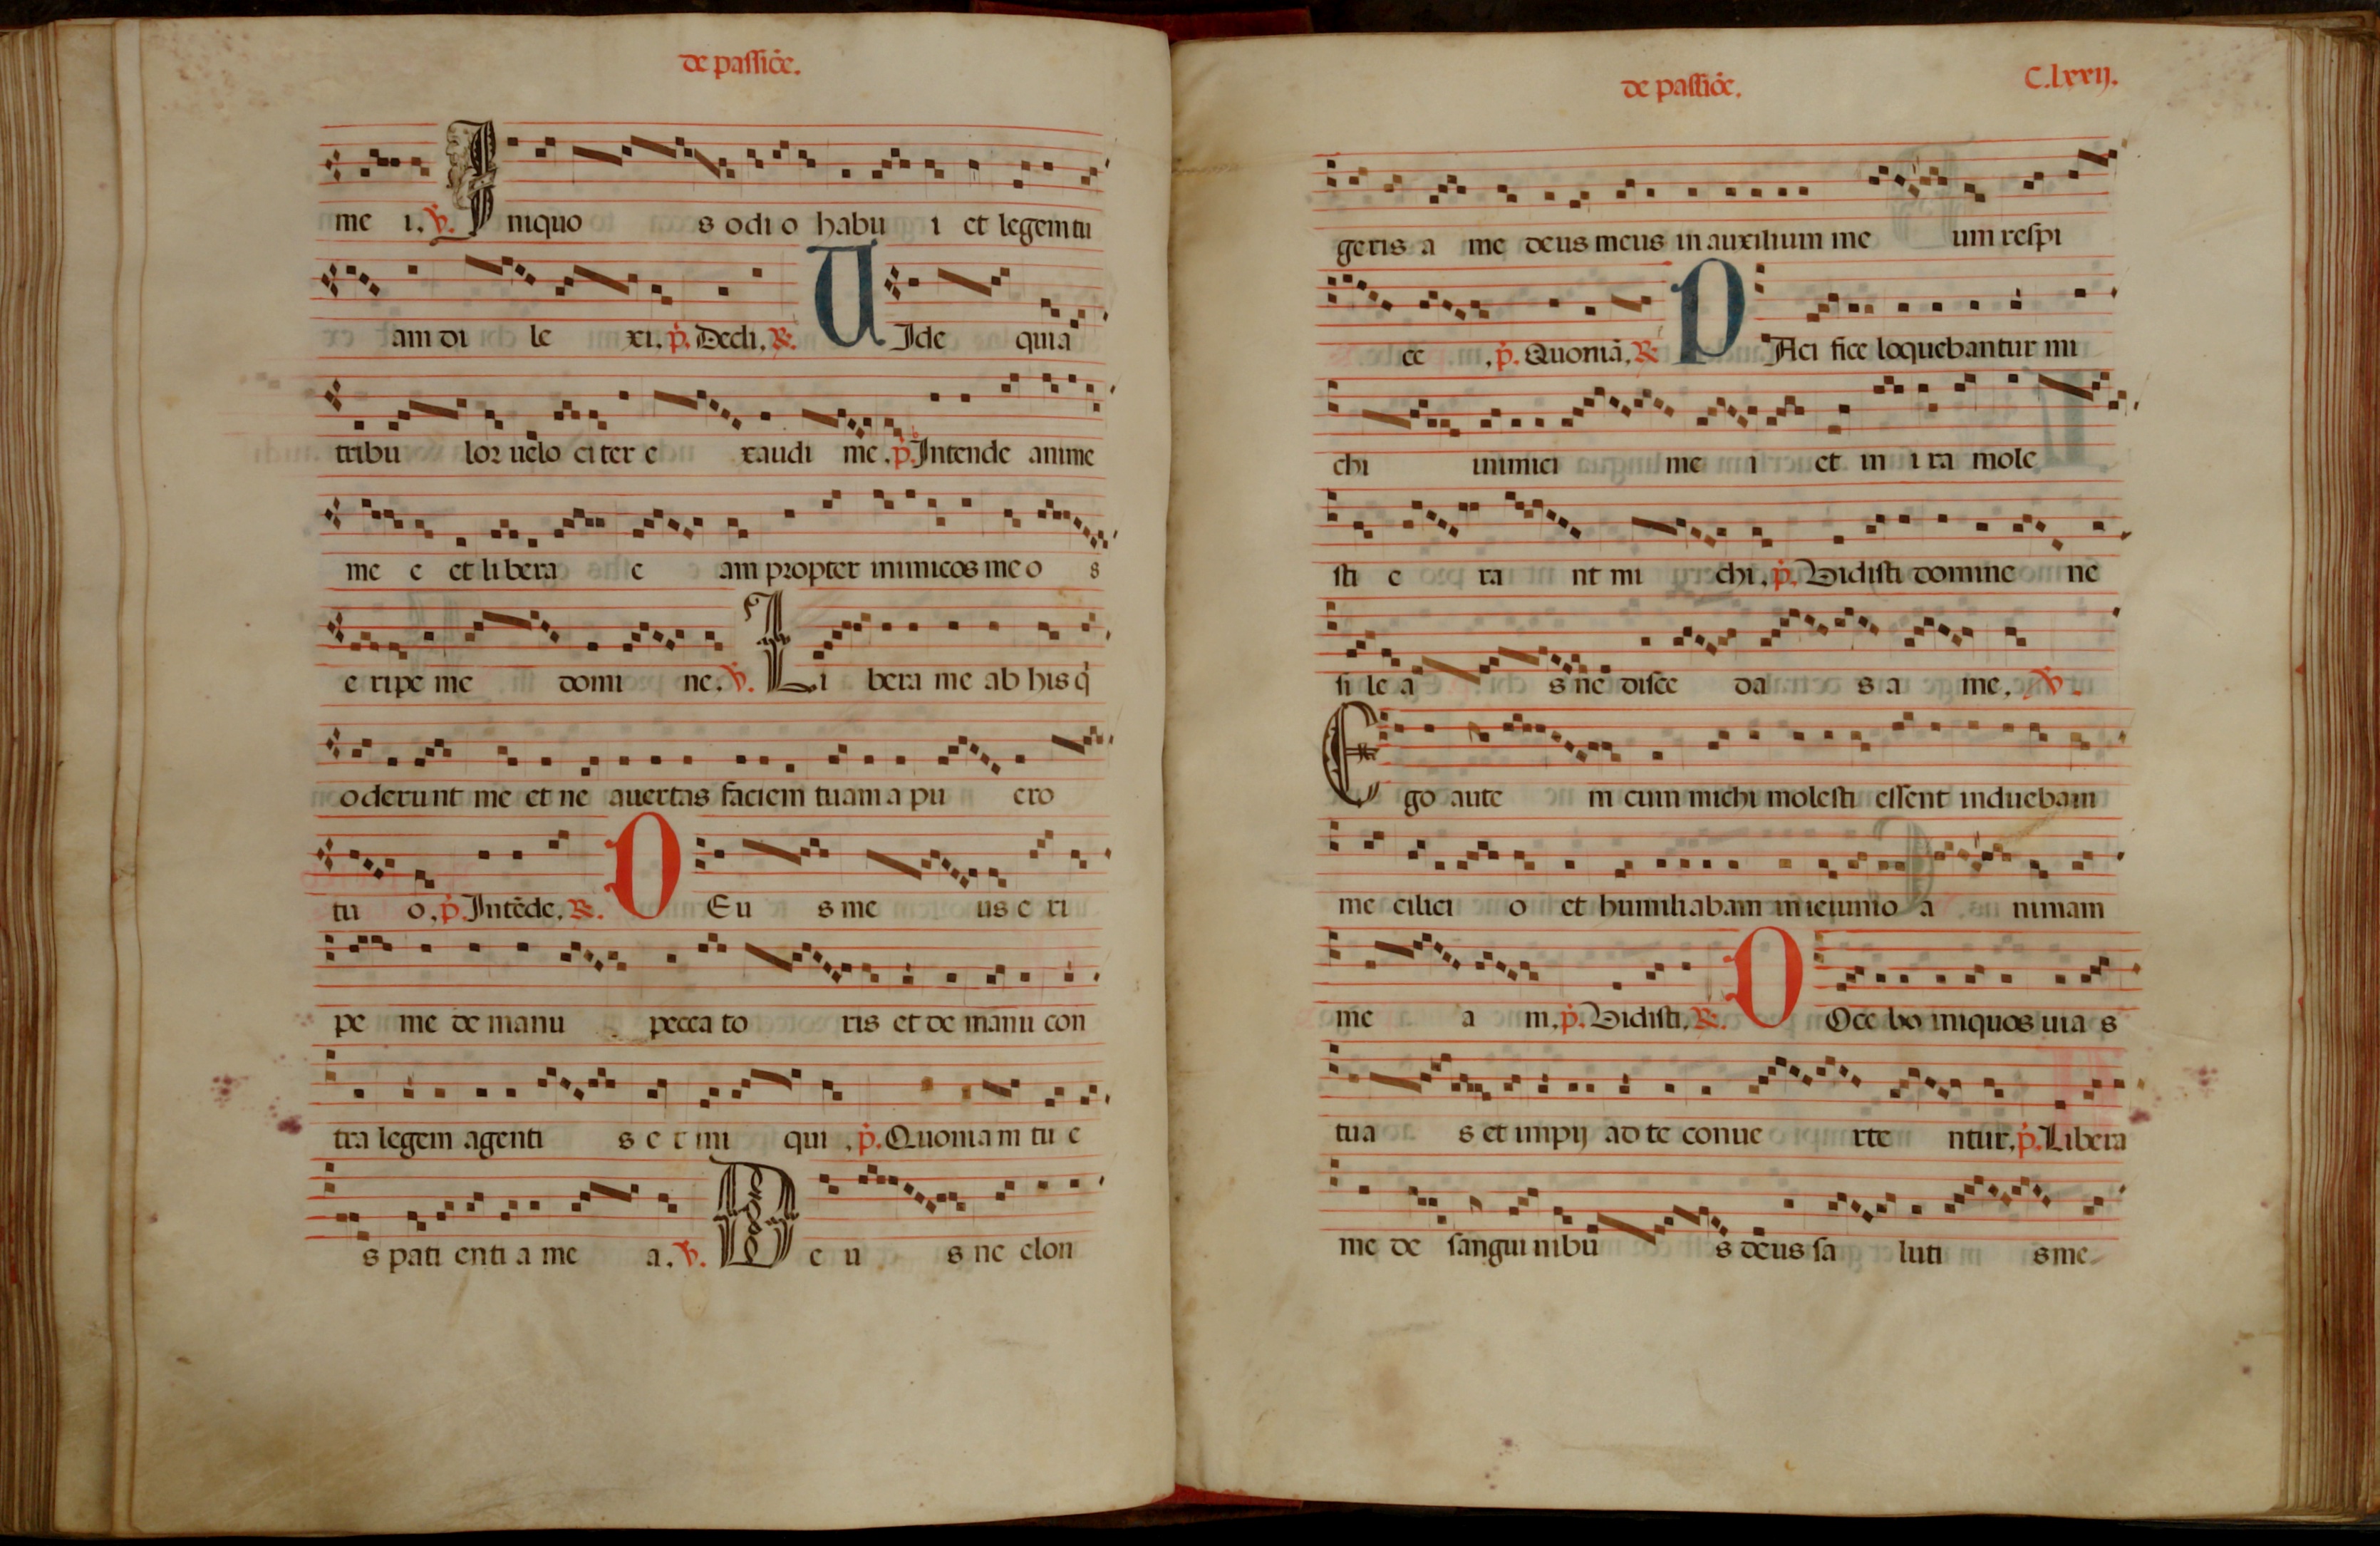 de passiōe.
me i. ℣. Iniquo s odi o habu i et legem tu
am di le xi. p̄. Dedi. ℟. UIde quia
tribu lor uelo citer e xaudi me. p̄. Intende anime
me e et libera e am propter inimicos me o s
eripe me domi ne. ℣. Li bera me ab his q
oderunt me et ne auertas faciem tuam a pu ero
tu o. p̄. Intēde. ℟. DEu s me us e ri
pe me de manu pecca to ris et de manu con
tra legem agenti s et ini qui. p̄. Quoniam tu e
s pati enti a me a. ℣. De u s ne elon
de passiōe. C.lxxij.
geris a me deus meus in auxilium me um respi
ce. p̄. Quoniā. ℟. PAci fice loquebantur mi
chi inimici me i et in i ra mole
sti e ra nt mi chi. p̄. Vidisti domine ne
si le a s ne disce da s a me. ℣.
Ego aute m cum michi molesti essent induebam
me cilici o et humiliabam in ieiunio a nimam
me a m. p̄. Vidisti. ℟. DOce bo iniquos uia s
tua s et impij ad te conue rte ntur. p̄. Libera
me de sangui nibu s deus sa luti s me